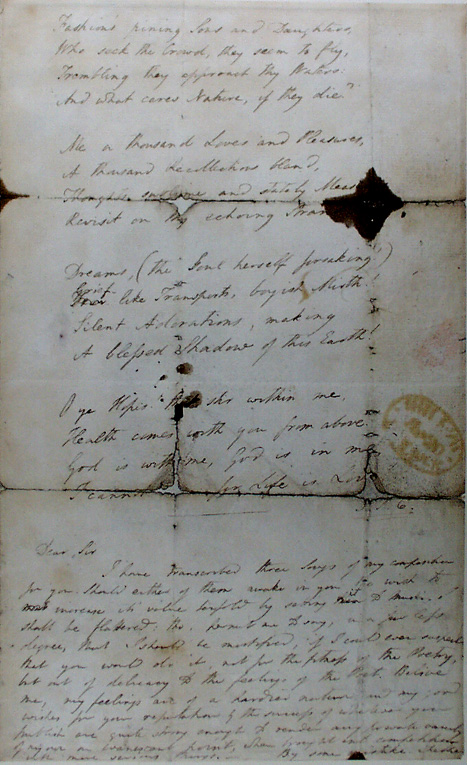 Fashion's pining Sons and Daughters,
Who seek the Crowd, they seem to fly,
Trembling they approach thy Waters:
And what cares Nature, if they die?
Me a thousand Loves and Pleasures,
A thousand Recollections bland,
Thoughts sublime and stately Meas
Revisit on thy echoing Stran
Dreams, (the Soul herself forsaking)
Grief like Transports, boyish Mirth!
Silent Adorations, making
A blessed Shadow of this Earth!
O ye Hopes! that stir within me,
Health comes with you from above:
God is with me, God is in me,
I cannot for Life is Love
S. T. C.
Dear Sir
I have transcribed three Songs of my composition
for you. Should either of them awake in you the wish to
increase its value tenfold by
shall be flattered: tho' permit me to say, in a far less
degree, that I should be mortified, if I could ever suspect
that you would do it, not for the fitness of the Poetry,
but out of delicacy to the feelings of the Poet. Believe
me, my feelings are of a hardier nature and my good
wishes for your reputation & the success of whatever you
publish are quite strong enough to render any private vanity
of mine
with more serious By some mistake